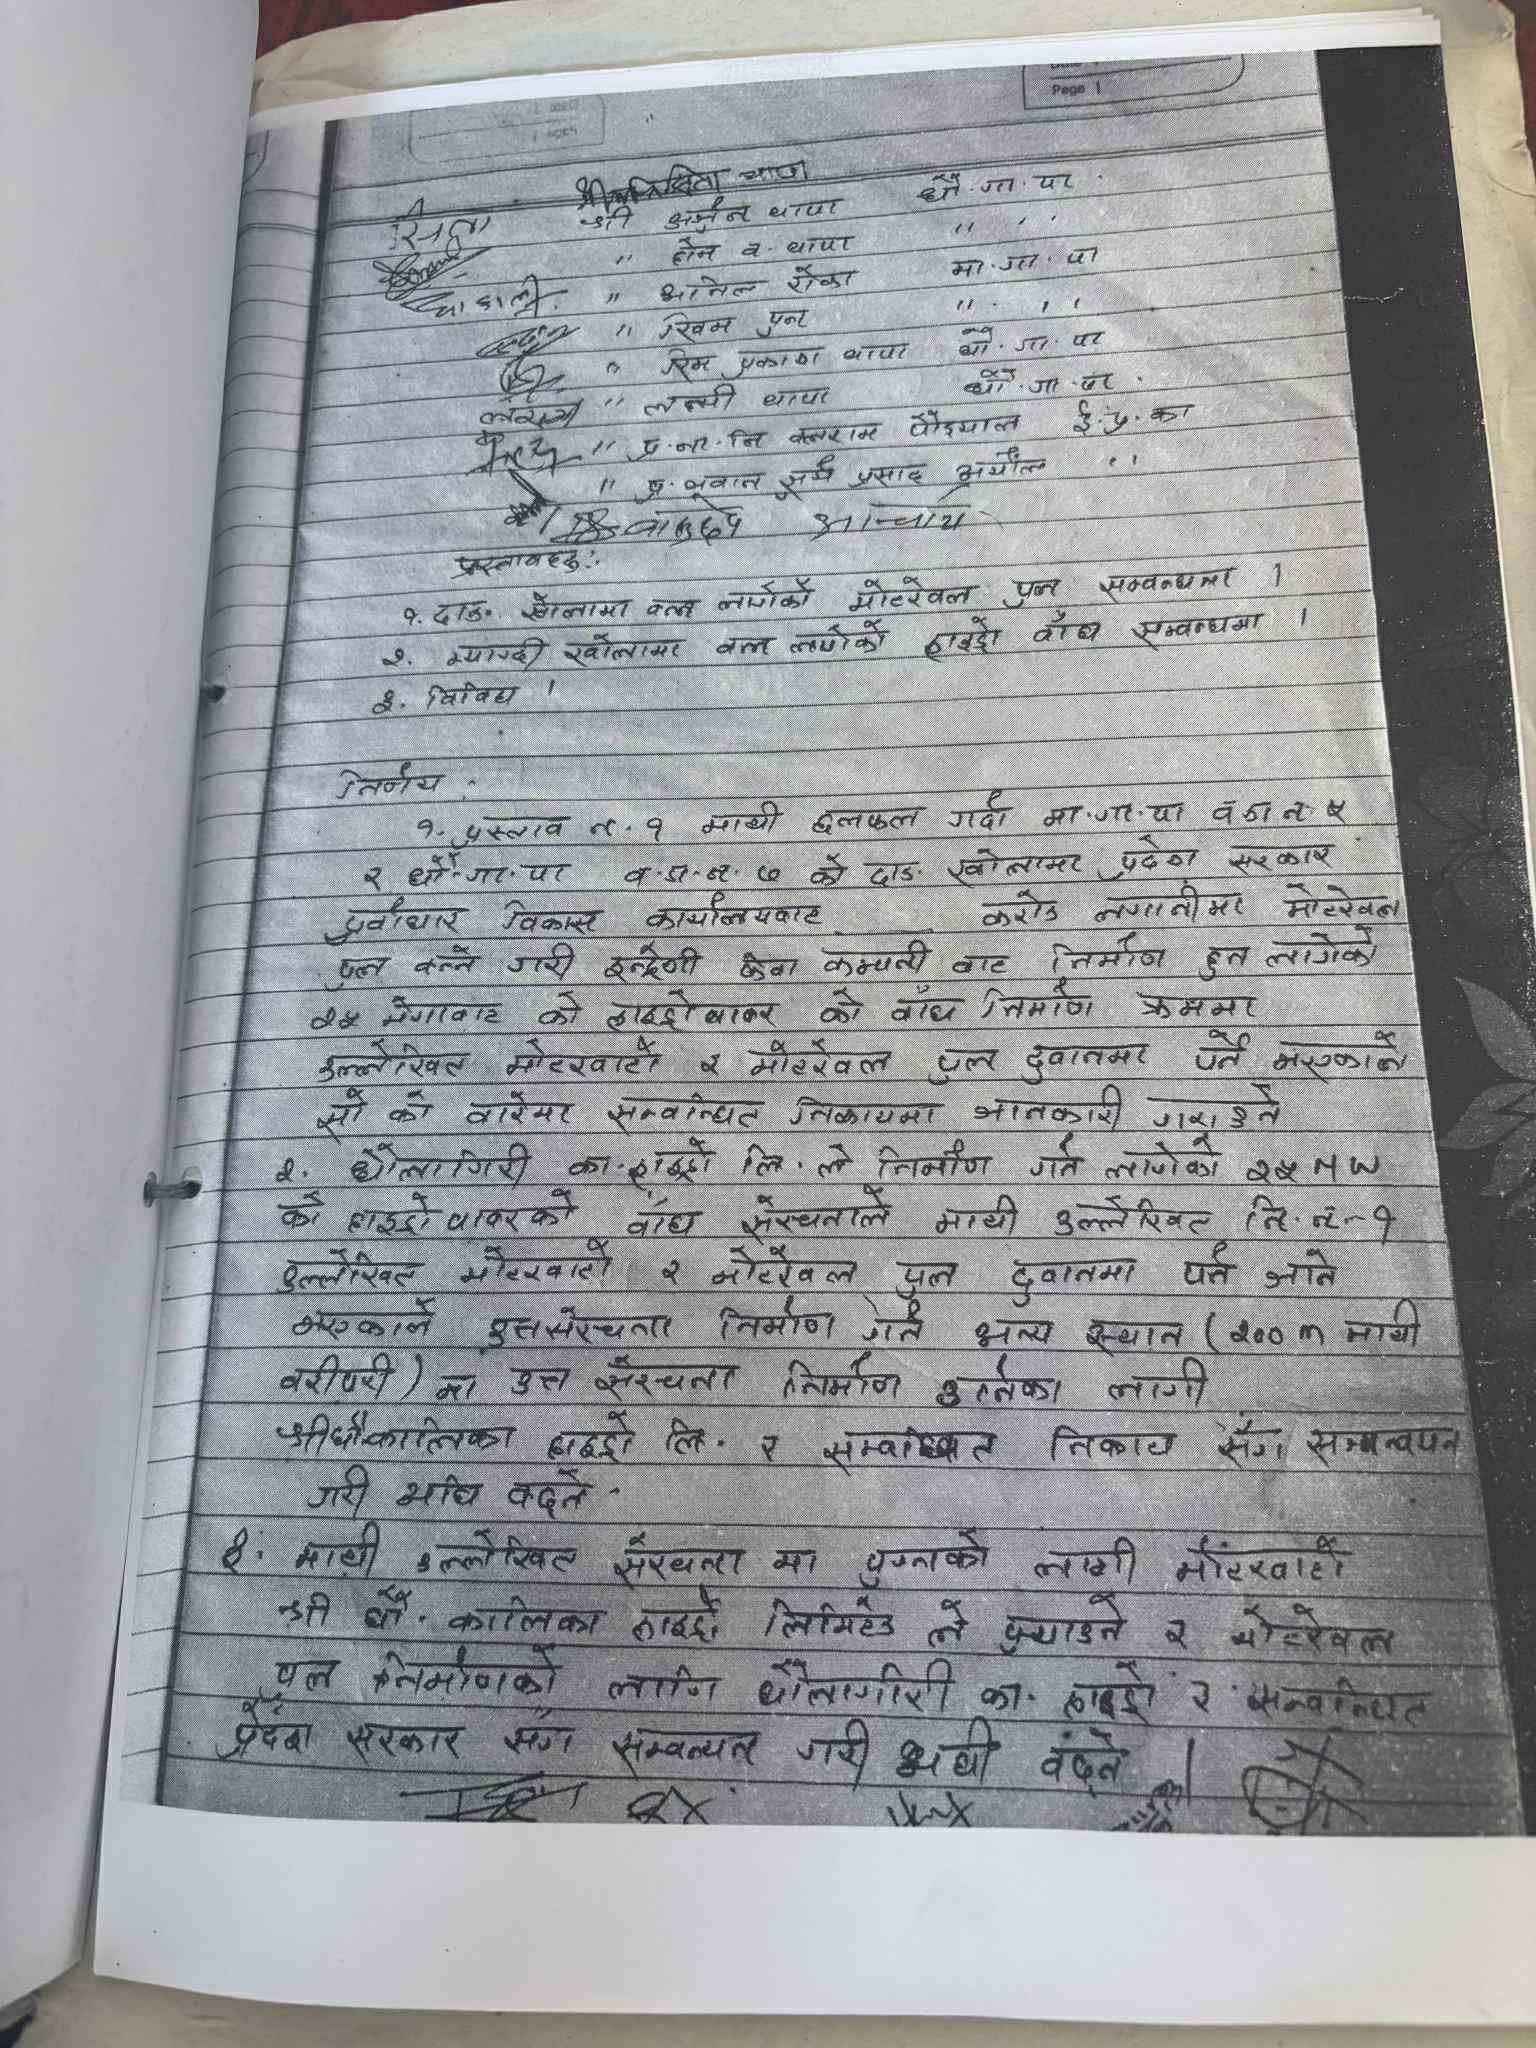 Page 1
श्री अर्जुन थापा धौ.गा.पा.
" होम ब. थापा " ' '
" अनिल रोका मा.गा.पा
" खिम पुन " ' '
" रिम प्रकाश थापा धौ.गा.पा
" लक्ष्मी थापा धौ.गा.पा.
" प्र.ना.नि बलराम पौड्याल ई.प्र.का
" प्र. सूर्य प्रसाद अर्याल ' '
प्रस्तावहरु:
१. दाङ खोलामा बन्न लागेको मोटरेबल पुल सम्बन्धमा ।
२. म्याग्दी खोलामा बन्न लागेको हाइड्रो बाँध सम्बन्धमा ।
३. विविध ।
निर्णय:
१. प्रस्ताव नं. १ माथी छलफल गर्दा मा.गा.पा वडा नं ५
र धौ.गा.पा व.डा.नं. ७ को दाङ खोलामा प्रदेश सरकार
पूर्वाधार विकास कार्यालयबाट ____ करोड लगानीमा मोटरेबल
पुल बन्ने गरी कम्पनी बाट निर्माण हुन लागेको
२५ मेगावाट को हाइड्रोपावर को बाँध निर्माण क्रममा
उल्लेखित मोटरबाटो र मोटरेबल पुल डुवानमा पर्ने भएकाले
सो को बारेमा सम्बन्धित निकायमा जानकारी गराउने
२. धौलागिरी का.हाइड्रो लि. ले निर्माण गर्न लागेको २५ MW
को हाइड्रोपावरको बाँध संरचनाले माथी उल्लेखित नि.नं-१
उल्लेखित मोटरबाटो र मोटरेबल पुल डुवानमा पर्न जाने
भएकाले उक्त संरचना निर्माण गर्न अन्य स्थान (२०० m माथी
वरीपरी) मा उक्त संरचना निर्माण गर्नका लागी
श्री धौ कालिका हाइड्रो लि. र सम्बन्धित निकाय सँग सम्बन्वयन
गरी अघि बढ्ने.
३. माथी उल्लेखित संरचना मा पुग्नको लागी मोटरबाटो
श्री धौ. कालिका हाइड्रो लिमिटेड ले पुर्‍याउने र मोटरेबल
पुल निर्माणको लागि धौलागीरी का. हाइड्रो र सम्बन्धित
प्रदेश सरकार सँग सम्बन्वयन गरी अघी बढ्ने ।